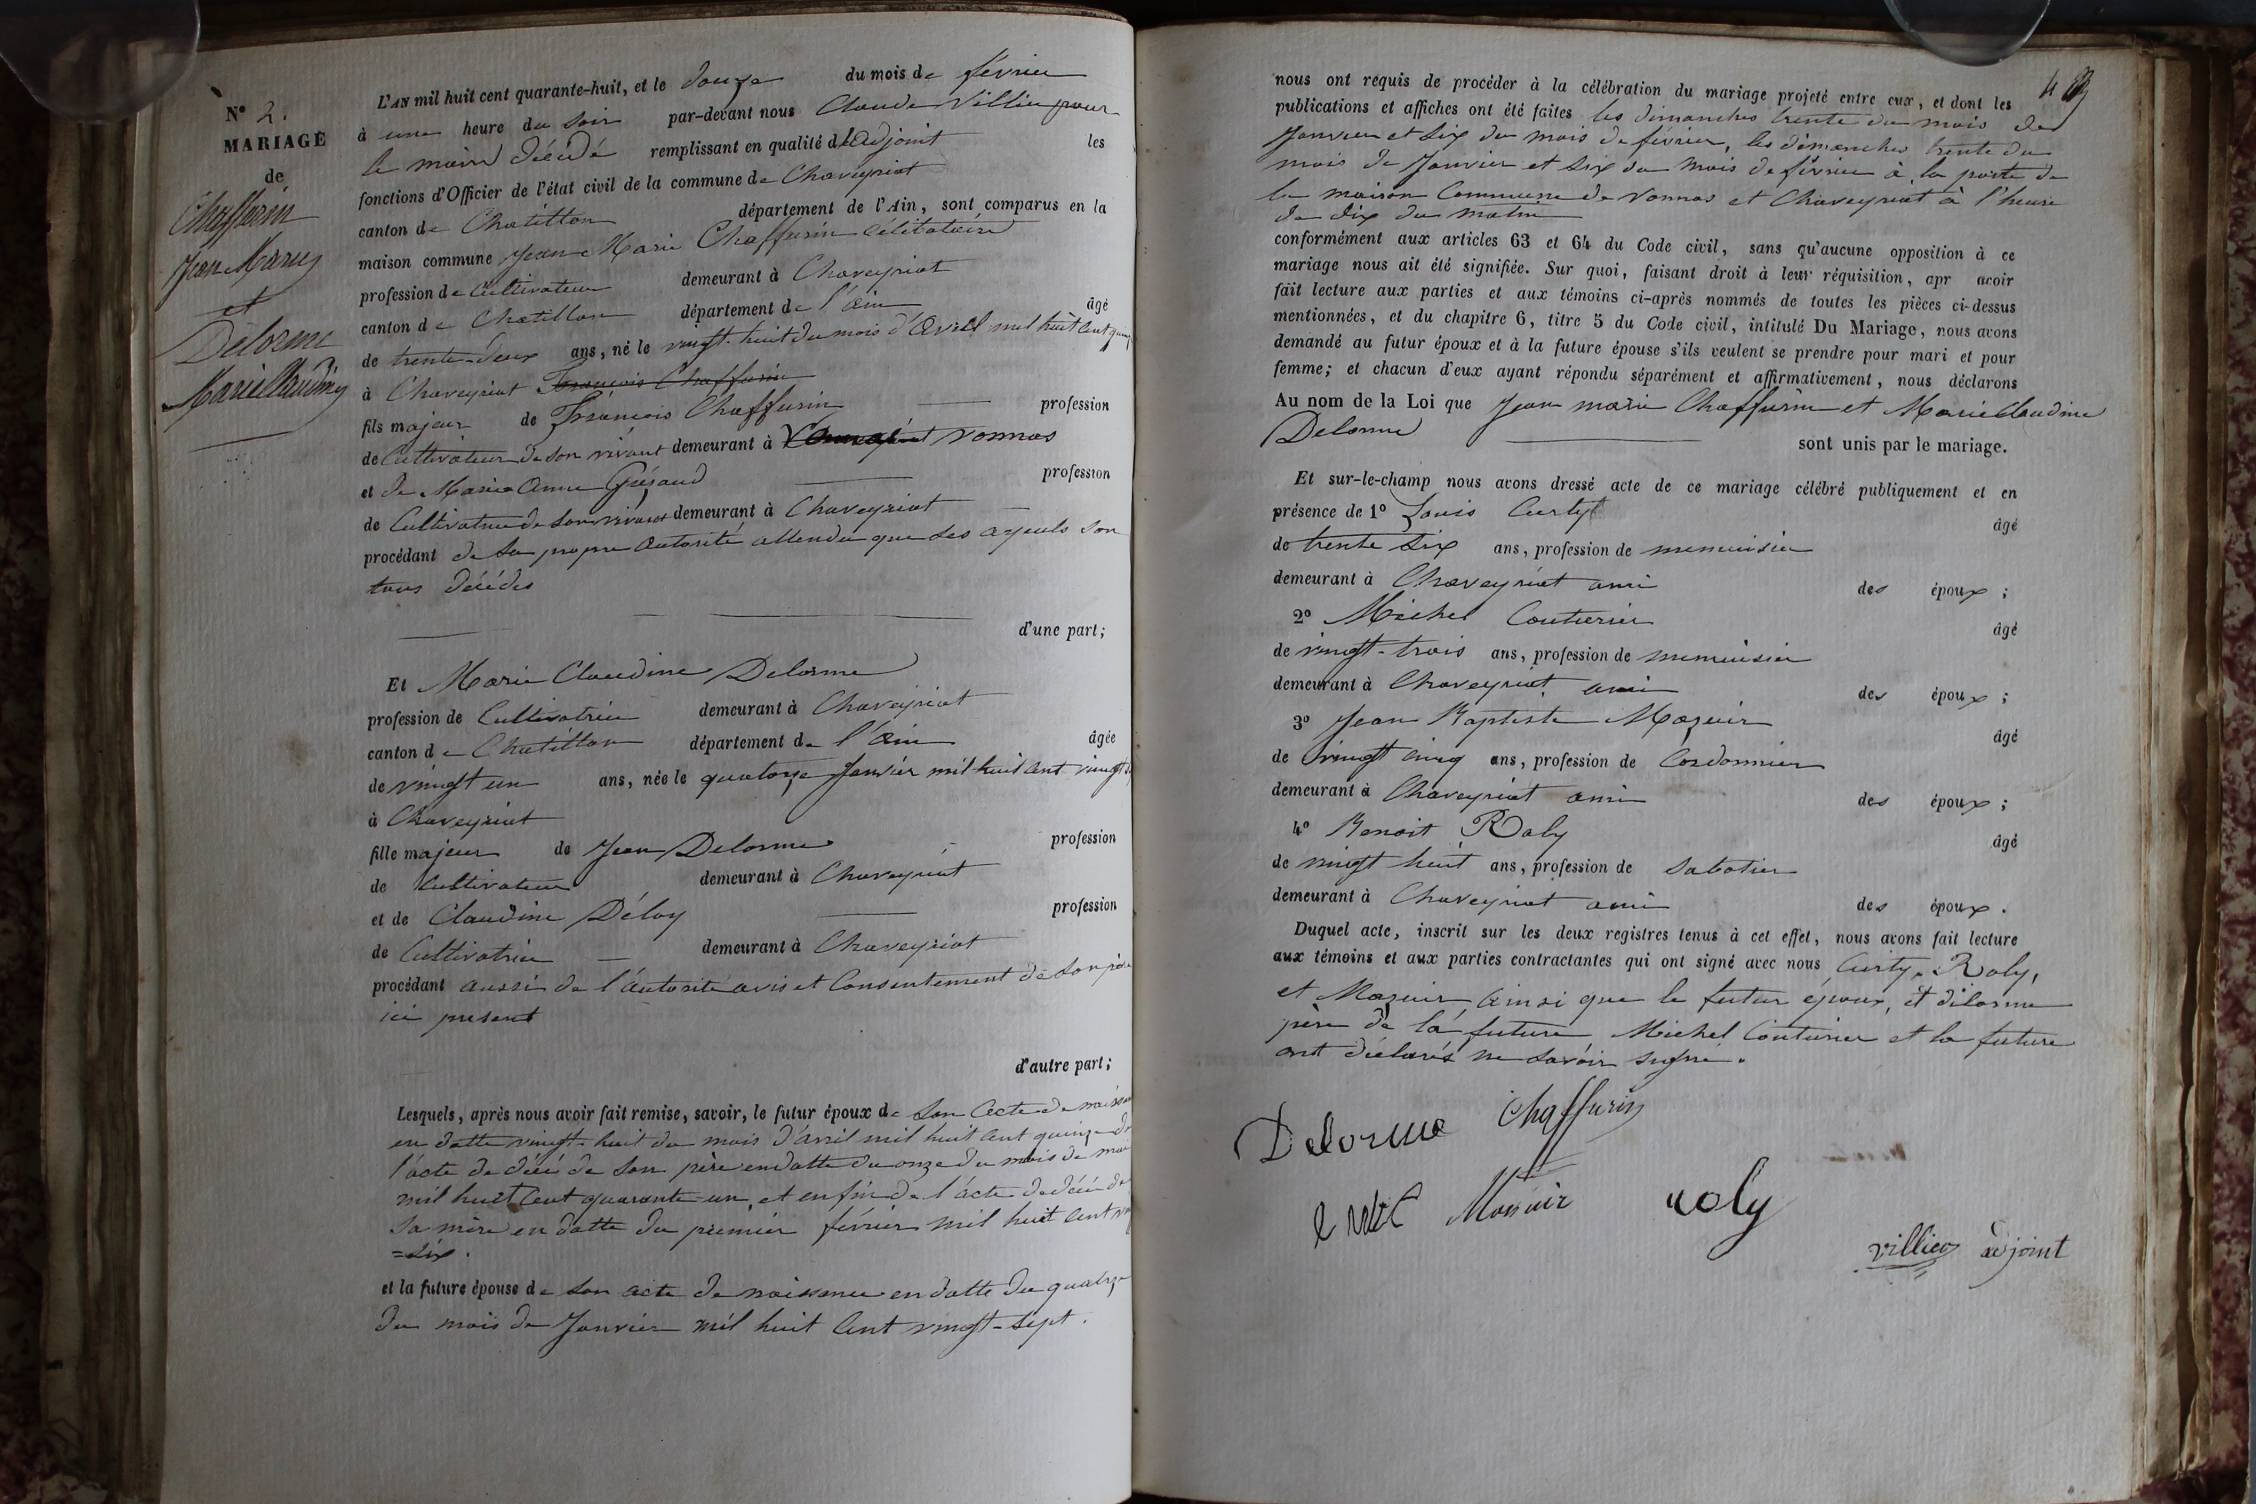 N° 2.
MARIAGE
de
Chaffurin
Jean Marie
et
Delorme
Marie Claudine
L'AN mil huit cent quarante-huit, et le douze du mois de février
à une heure du soir par-devant nous Claude Villier pour
le maire décédé remplissant en qualité d'adjoint les
fonctions d'Officier de l'état civil de la commune de Chaveyriat
canton de Chatillon département de l'Ain, sont comparus en la
maison commune Jean Marie Chaffurin célibataire
profession de Cultivateur demeurant à Chaveyriat
canton de Chatillon département de l'ain âgé
de trente-deux ans, né le vingt-huit du mois d'avril mil huit cent quinze
à Chaveyriat François Chaffurin
fils majeur de François Chaffurin profession
de Cultivateur de son vivant demeurant à Vonnas
et de Marie Anne profession
de Cultivatrice de son vivant demeurant à Chaveyriat
procédant de sa propre autorité attendu que ses ayeuls son
tous décédés
d'une part;
Et Marie Claudine Delorme
profession de Cultivatrice demeurant à Chaveyriat
canton de Chatillon département de l'ain âgée
de vingt un ans, née le quatorze Janvier mil huit cent vingt
à Chaveyriat
fille majeure de Jean Delorme profession
de Cultivateur demeurant à Chaveyriat
et de Claudine Déloy profession
de Cultivatrice demeurant à Chaveyriat
procédant aussi de l'autorité avis et consentement de son père
ici présent
d'autre part;
Lesquels, après nous avoir fait remise, savoir, le futur époux de son acte de naissance
en datte vingt-huit du mois d'avril mil huit cent quinze de
l'acte de décé de son père en datte du onze du mois de mai
mil huit cent quarante-un, et enfin de l'acte de décé de
sa mère en datte du premier février mil huit cent
=six.
et la future épouse de son acte de naissance en datte du quatorze
du mois de Janvier mil huit cent vingt-sept.
nous ont requis de procéder à la célébration du mariage projeté entre eux, et dont les
publications et affiches ont été faites les dimanches trente du mois de
Janvier et six du mois de février, les dimanches trente du
mois de Janvier et six du mois de février à la porte de
la maison Commune de Vonnas et Chaveyriat à l'heure
de dix du matin
conformément aux articles 63 et 64 du Code civil, sans qu'aucune opposition à ce
mariage nous ait été signifiée. Sur quoi, faisant droit à leur réquisition, apr avoir
fait lecture aux parties et aux témoins ci-après nommés de toutes les pièces ci-dessus
mentionnées, et du chapitre 6, titre 5 du Code civil, intitulé Du Mariage, nous avons
demandé au futur époux et à la future épouse s'ils veulent se prendre pour mari et pour
femme; et chacun d'eux ayant répondu séparément et affirmativement, nous déclarons
Au nom de la Loi que Jean marie Chaffurin et Marie Claudine
Delorme sont unis par le mariage.
Et sur-le-champ nous avons dressé acte de ce mariage célébré publiquement et en
présence de 1° Louis Curty âgé
de trente six ans, profession de menuisier
demeurant à Chaveyriat ami des époux;
2° Michel Couturier âgé
de vingt-trois ans, profession de menuisier
demeurant à Chaveyriat ami des époux;
3° Jean Baptiste Mazuir âgé
de vingt cinq ans, profession de Cordonnier
demeurant à Chaveyriat ami des époux;
4° Benoit Roly âgé
de vingt huit ans, profession de sabotier
demeurant à Chaveyriat ami des époux.
Duquel acte, inscrit sur les deux registres tenus à cet effet, nous avons fait lecture
aux témoins et aux parties contractantes qui ont signé avec nous Curty, Roly,
et Mazuir ainsi que le futur époux, et délorme
père de la future Michel Couturier et la future
ont déclarés ne savoir signe.
Delorme Chaffurin
Mazuir roly
villier adjoint